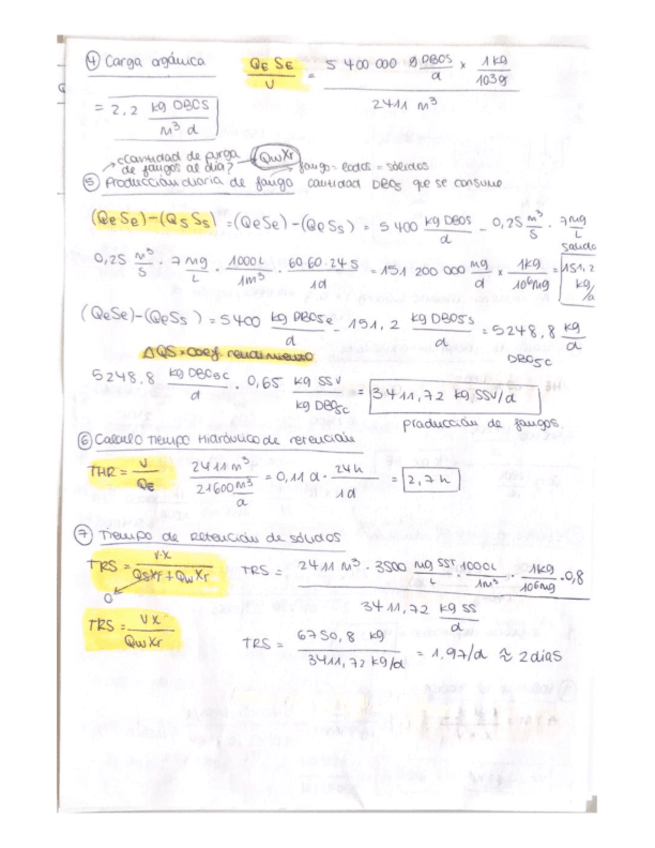 ④ Carga orgánica
QE SE / V = 5 400 000 g DBO5/d × 1kg/103g / 2411 m³
= 2,2 kg DBO5 / m³ d
→ ¿Cantidad de purga de fangos al día? QwXr → fango = lodos = sólidos
⑤ Producción diaria de fango cantidad DBO5 que se consume
(QeSe)-(QsSs) = (QeSe)-(QeSs) = 5 400 kg DBO5/d - 0,25 m³/s · 7mg/L salida
0,25 m³/s · 7 mg/L · 1000L/1m³ · 60·60·24 s/1d = 151 200 000 mg/d × 1kg/10⁶mg = 151,2 kg/d
(QeSe)-(QeSs) = 5400 kg DBO5e/d - 151,2 kg DBO5s/d = 5248,8 kg/d DBO5c
ΔQS × coef. rendimiento
5248,8 kg DBO5c/d · 0,65 kg SSV/kg DBO5c = 3.411,72 kg SSV/d
producción de fangos.
⑥ Calculo Tiempo Hidráulico de retención
THR = V/QE 2411 m³/21600 m³/d = 0,11 d · 24h/1d = 2,7 h
⑦ Tiempo de Retención de sólidos
TRS = V·X/QsXr + QwXr TRS = 2411 m³ · 3500 mg SST/L · 1000L/1m³ · 1kg/10⁶mg · 0,8
0 3411,72 kg SS/d
TRS = VX/QwXr
TRS = 6750,8 kg/3411,72 kg/d = 1,97/d ≈ 2 días